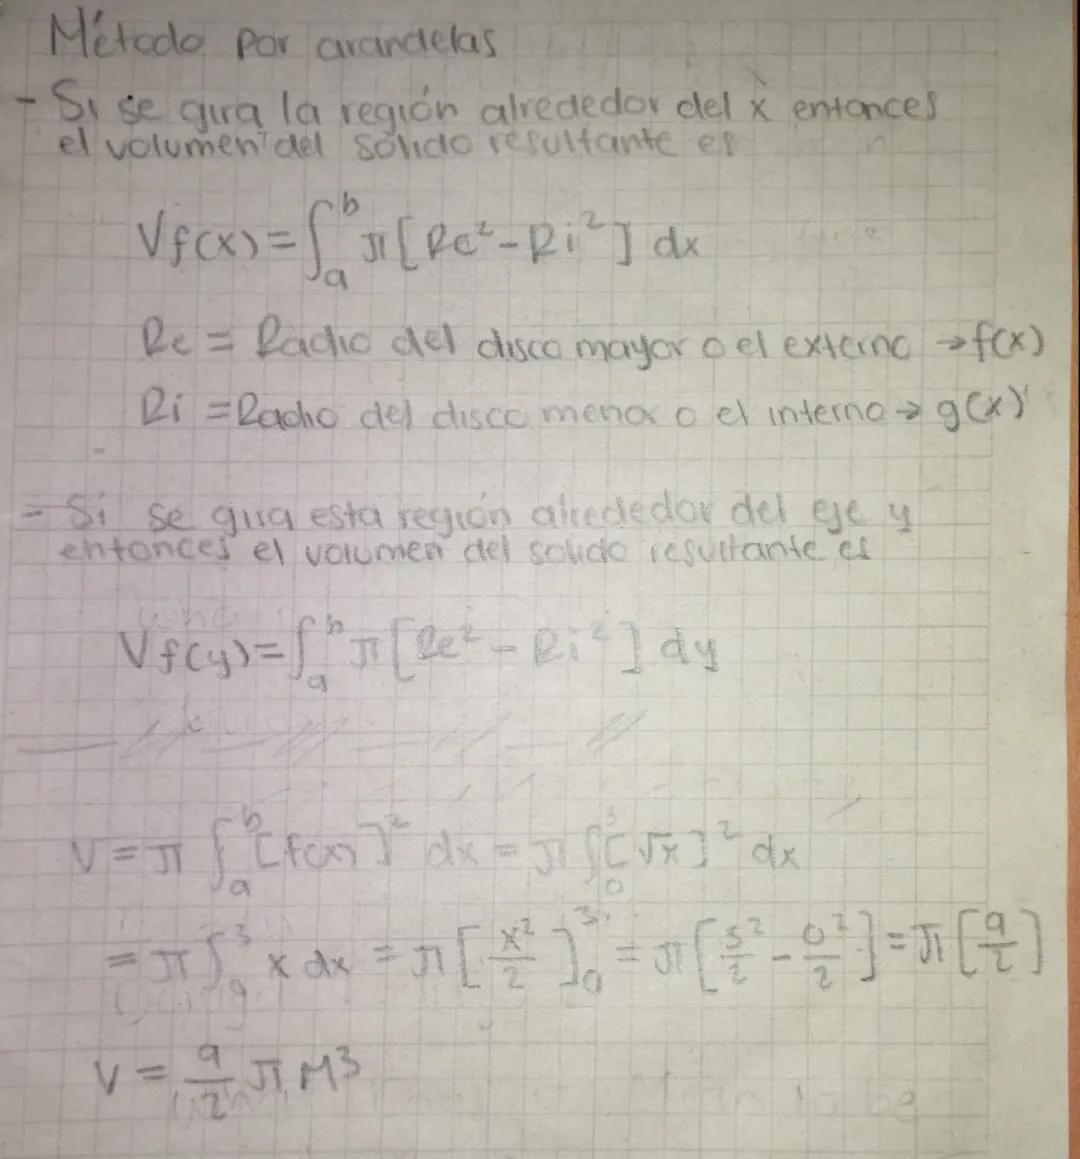 Método por arandelas
- Si se gira la región alrededor del x entonces
el volumen del solido resultante es
Vf(x)=∫_a^b π[Re²-Ri²] dx
Re = Radio del disco mayor o el externo → f(x)
Ri = Radio del disco menor o el interno → g(x)
- Si se gira esta región alrededor del eje y
entonces el volumen del solido resultante es
Vf(y)=∫_a^b π[Re²-Ri²] dy
V=π ∫_a^b [f(x)]² dx = π ∫_0^3 [√x]² dx
= π ∫_0^3 x dx = π [x²/2]_0^3 = π [3²/2 - 0²/2] = π [9/2]
V = 9/2 π M³